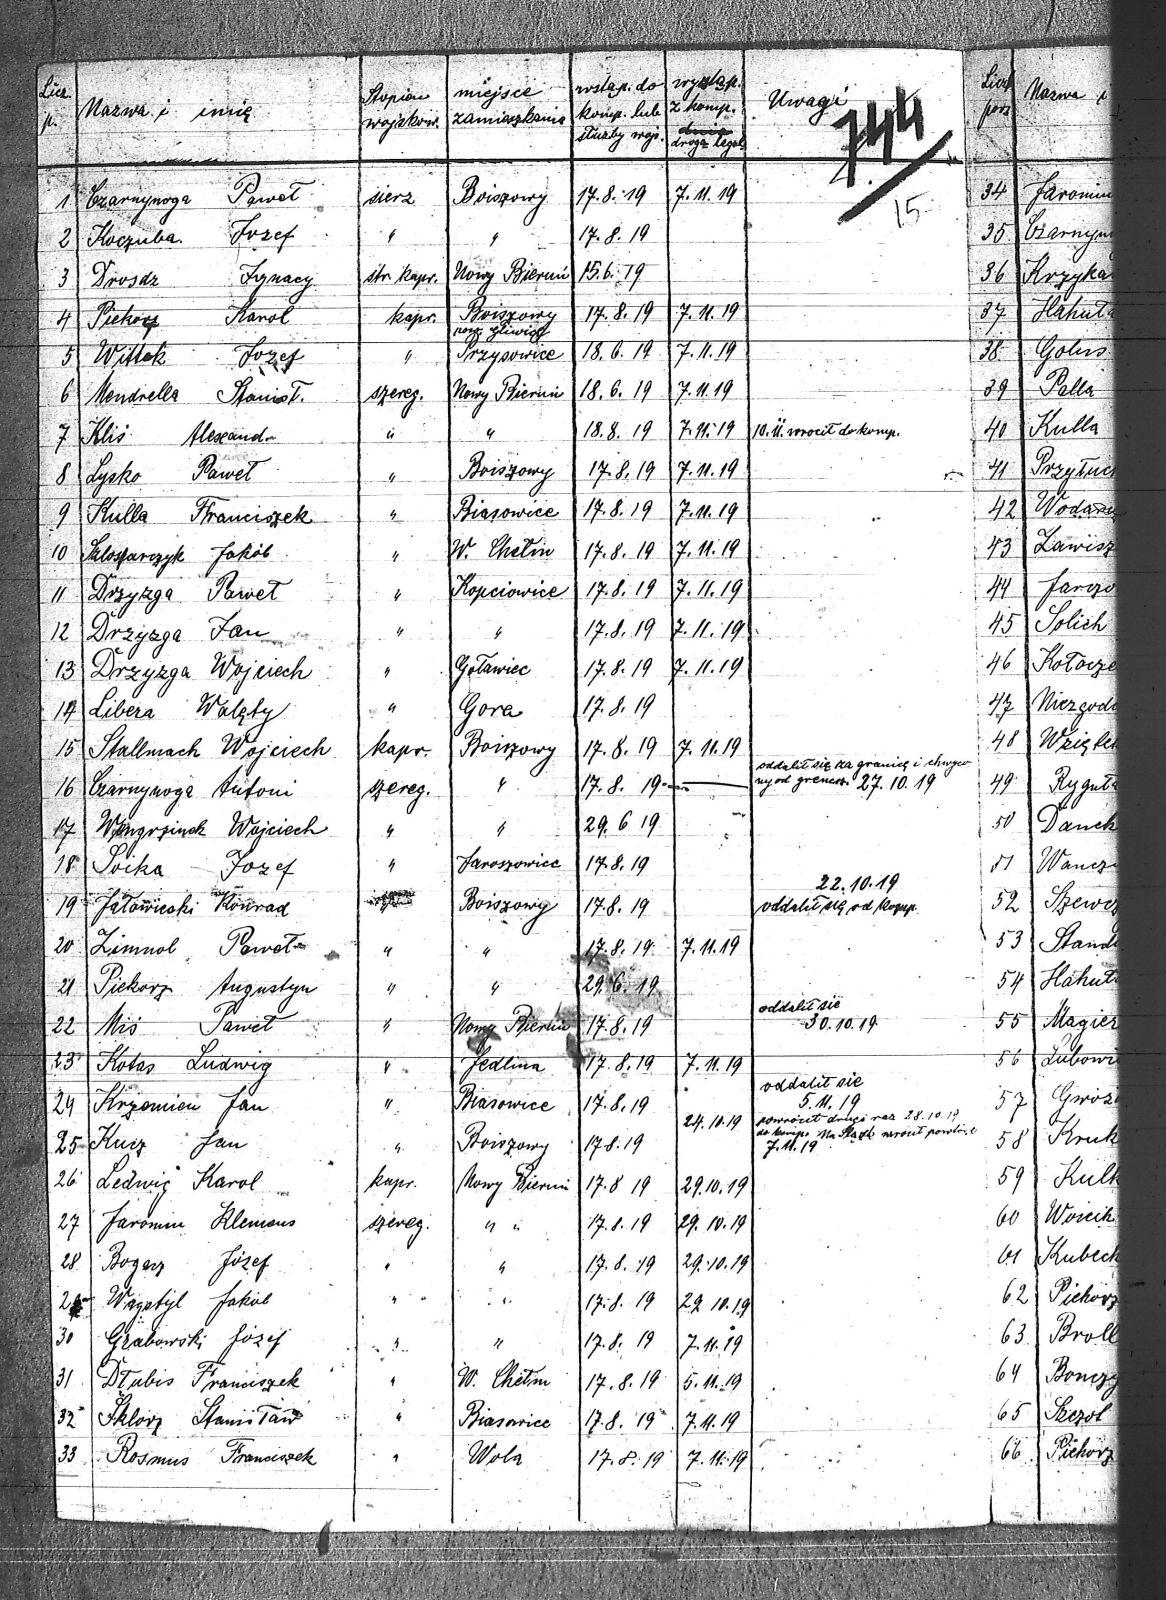 Licz. p. Nazwa i imię Stopien wojskow. miejsce zamieszkania wstąp. do komp. lub służby wojs. wystąp. z komp. drogą legal. Uwagi
744
15
1 Czarnynoga Paweł sierż Boiszowy 17.8.19 7.11.19
2 Koczuba Jozef " " 17.8.19
3 Drosdz Ignacy str. kapr. Nowy Bieruń 15.6.19
4 Piekorz Karol kapr. Boiszowy 17.8.19 7.11.19
5 Wittek Jozef " Przysowice 18.6.19 7.11.19
6 Mendrella Stanisł. szereg. Nowy Bieruń 18.6.19 7.11.19
7 Kliś Alexand. " " 18.8.19 7.11.19 10.11. wrocił do komp.
8 Lysko Paweł " Boiszowy 17.8.19 7.11.19
9 Kulla Franciszek " Biasowice 17.8.19 7.11.19
10 Szlosarczyk Jakób " W. Chełm 17.8.19 7.11.19
11 Drzyzga Paweł " Kopciowice 17.8.19 7.11.19
12 Drzyzga Jan " " 17.8.19 7.11.19
13 Drzyzga Wojciech " Goławiec 17.8.19 7.11.19
14 Libera Walęty " Gora 17.8.19
15 Stallmach Wojciech kapr. Boiszowy 17.8.19 7.11.19
16 Czarnynoga Antoni szereg. " 17.8.19 — oddalił się za granicę i chwyco ny od grencsz. 27.10.19
17 Wojciech " " 29.6 19
18 Soika Jozef " Jaroszowice 17.8.19
19 Jałowiecki Konrad " Boiszowy 17.8.19 22.10.19 oddalił się od komp.
20 Zimnol Paweł " " 17.8.19 7.11.19
21 Piekorz Augustyn " " 29.6.19
22 Miś Paweł " Nowy Bieruń 17.8.19 oddalił sie 30.10.19
23 Kotas Ludwig " Jedlina 17.8.19 7.11.19
24 Krzemien Jan " Biasowice 17.8.19 oddalił sie 5.11.19
25 Kucz Jan " Boiszowy 17.8.19 24.10.19 powrócił drugi raz 28.10.19 do komp. wrócił 7.11.19
26 Ledwig Karol kapr. Nowy Bieruń 17.8 19 29.10.19
27 Jaromin Klemens szereg. " " 17.8.19 29.10.19
28 Bogacz Józef " " 17.8.19 29.10.19
29 Jakób " " 17.8.19 29.10.19
30 Grabowski Józef " " 17.8.19 7.11.19
31 Dłubis Franciszek " W. Chełm 17.8.19 5.11.19
32 Sklorz Stanisław " Biasowice 17.8.19 7.11.19
33 Rosmus Franciszek " Wola 17.8.19 7.11.19
Licz porz Nazwa i
34 Jaromin
35 Czarnyn
36 Krzyka
37 Hahuta
38 Golus
39 Palla
40 Kulla
41 Przyłuc
42 Wodars
43 Zawisz
44 Jarczo
45 Solich
46 Kołocze
47 Niezgod
48 Wzięte
49 Ryguła
50 Danek
51 Wancz
52 Szewc
53 Stand
54 Hahut
55 Magier
56 Lubowi
57 Gwoz
58 Kruk
59 Kulk
60 Woicik
61 Kubeck
62 Piekorz
63 Broll
64 Bonczy
65 Szczot
66 Piekorz